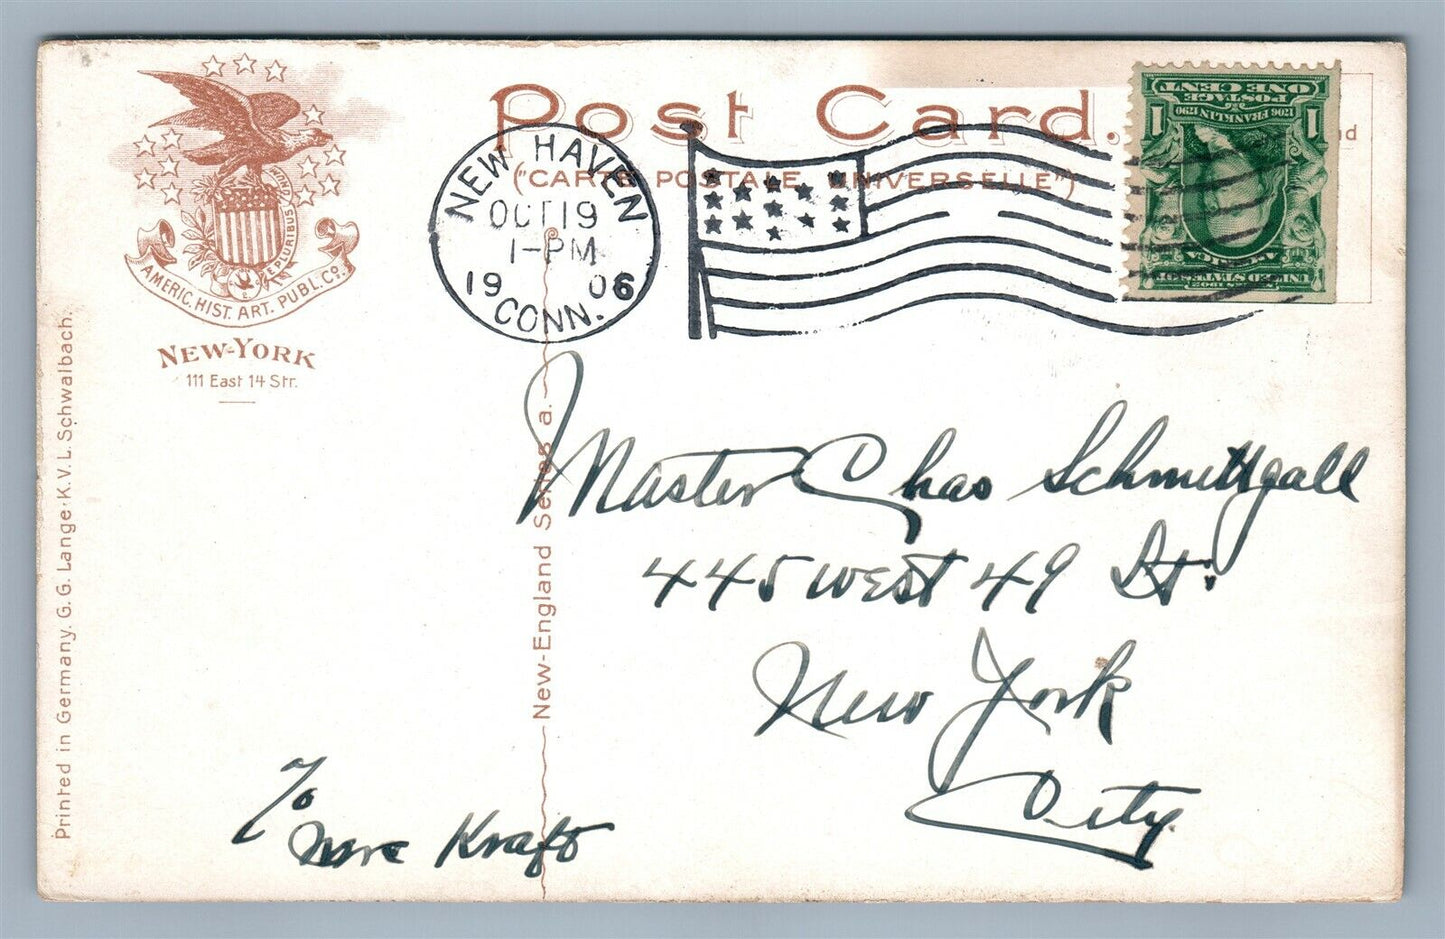 Post Card.
("CARTE POSTALE UNIVERSELLE")
NEW HAVEN
OCT 19
1-PM
1906
CONN.
UNITED STATES OF AMERICA
SERIES 1902
1706 FRANKLIN 1790
POSTAGE
ONE CENT
1 1
E PLURIBUS UNUM
AMERIC. HIST. ART. PUBL. CO.
NEW-YORK
111 East 14 Str.
Printed in Germany. G. G. Lange · K. V. L. Schwalbach.
New-England Series a.
Master Chas Schmittgall
445 WEST 49 St.
New York
City
To
Mrs Kraft